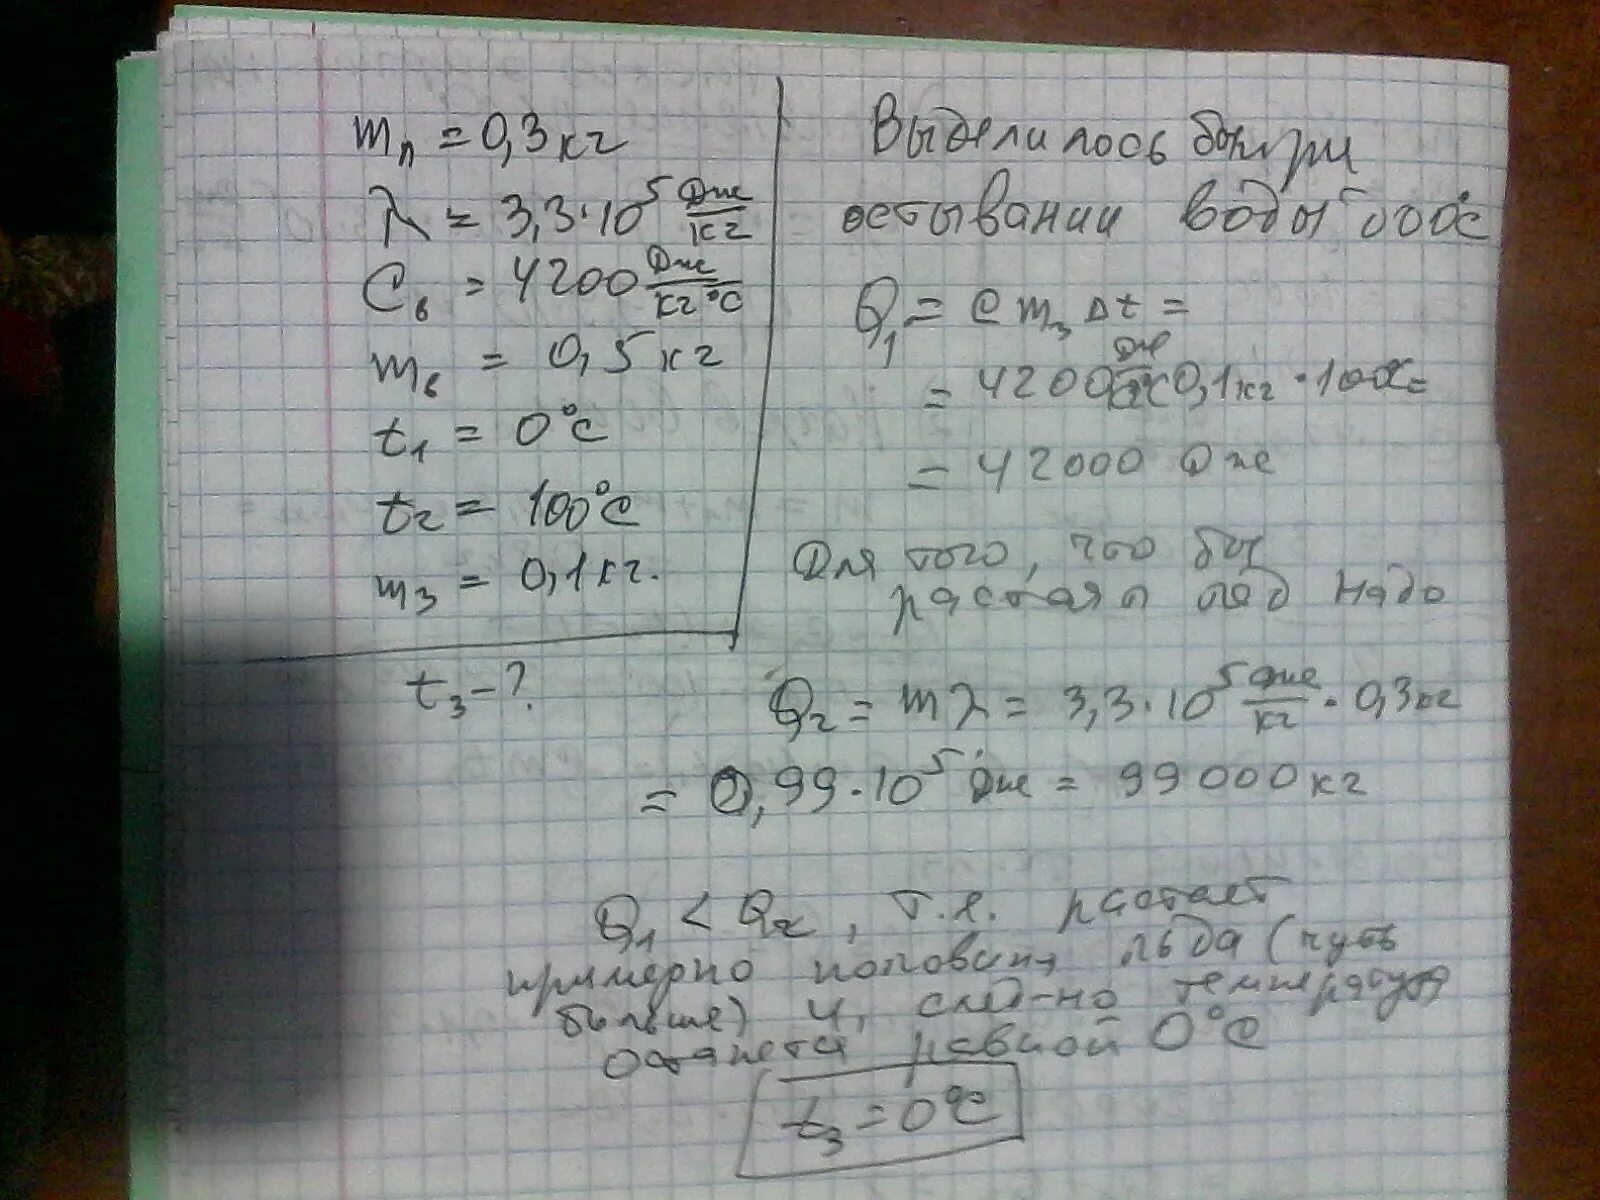 mл = 0,3 кг
λ = 3,3·10⁵ Дж/кг
Cв = 4200 Дж/кг°C
mв = 0,5 кг
t₁ = 0°C
t₂ = 100°C
m₃ = 0,1 кг.
t₃ - ?
Выделилось бы при
остывании воды до 0°C
Q₁ = c m₃ Δt =
= 4200 Дж/кг°C 0,1 кг · 100°C =
= 42000 Дж
Для того, что бы
растаял лёд надо
Q₂ = mλ = 3,3·10⁵ Дж/кг · 0,3 кг
= 0,99·10⁵ Дж = 99000 кг
Q₁ < Q₂, т.е. растает
примерно половина льда (чуть
больше) и, след-но температура
останется равной 0°C
t₃ = 0°C